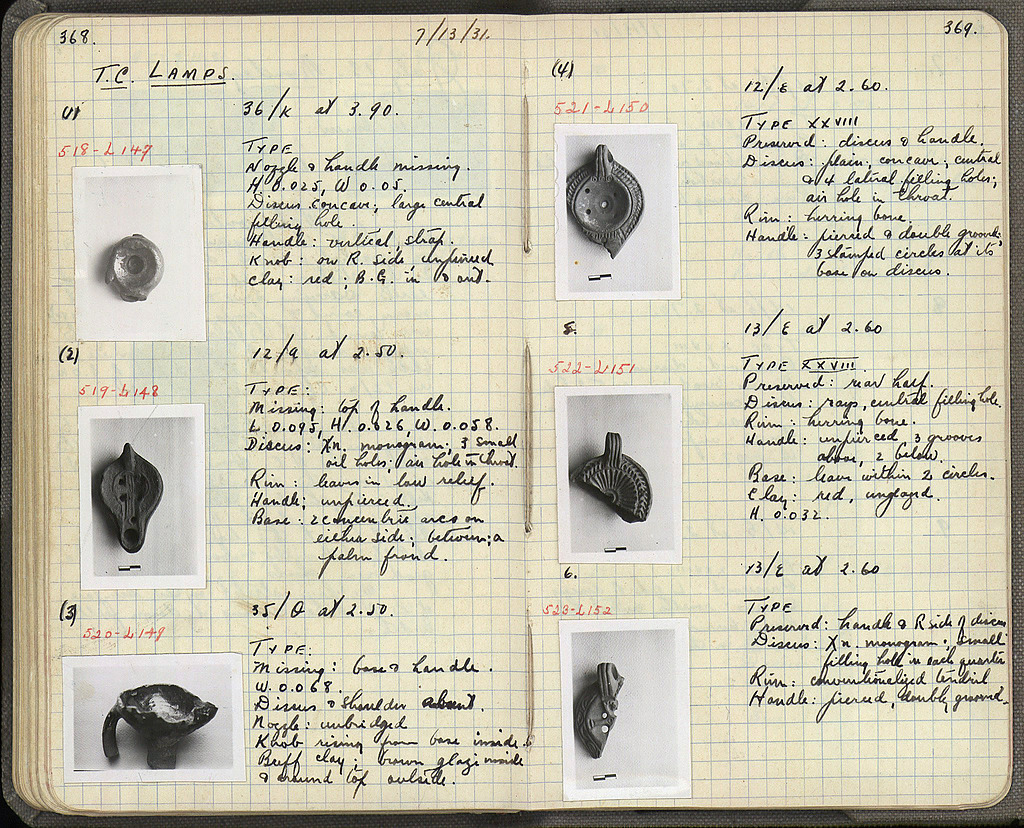 368.
7/13/31.
T.C. LAMPS.
(1)
36/K at 3.90.
518-L147
TYPE
Nozzle & handle missing.
H 0.025, W 0.05.
Discus concave; large central
filling hole.
Handle: vertical, strap.
Knob: on R. side unpierced
Clay: red; B.G. in & out.
(2)
12/Θ at 2.50.
519-L148
TYPE:
Missing: top of handle.
L. 0.095, H. 0.026, W. 0.058.
Discus: Xn. monogram; 3 small
oil holes; air hole in throat.
Rim: leaves in low relief.
Handle: unpierced.
Base: 2 concentric arcs on
either side; between; a
palm frond.
(3)
35/Θ at 2.50.
520-L149
TYPE:
Missing: base & handle.
W. 0.068.
Discus & shoulder absent.
Nozzle: unbridged
Knob rising from base inside.
Buff clay; brown glaze inside
& around top outside.
369.
(4)
12/E at 2.60.
521-L150
TYPE XXVIII
Preserved: discus & handle.
Discus: plain, concave; central
& 4 lateral filling holes;
air hole in throat.
Rim: herring bone.
Handle: pierced & double grooved;
3 stamped circles at its
base on discus.
5.
13/E at 2.60
522-L151
TYPE XXVIII.
Preserved: rear half.
Discus: rays, central filling hole.
Rim: herring bone.
Handle: unpierced, 3 grooves
above, 2 below.
Base: leaf within 2 circles.
Clay: red, unglazed.
H. 0.032.
6.
13/E at 2.60
523-L152
TYPE
Preserved: handle & R side of discus
Discus: Xn. monogram; small
filling hole in each quarter
Rim: conventionalized tendril
Handle: pierced, double grooved.